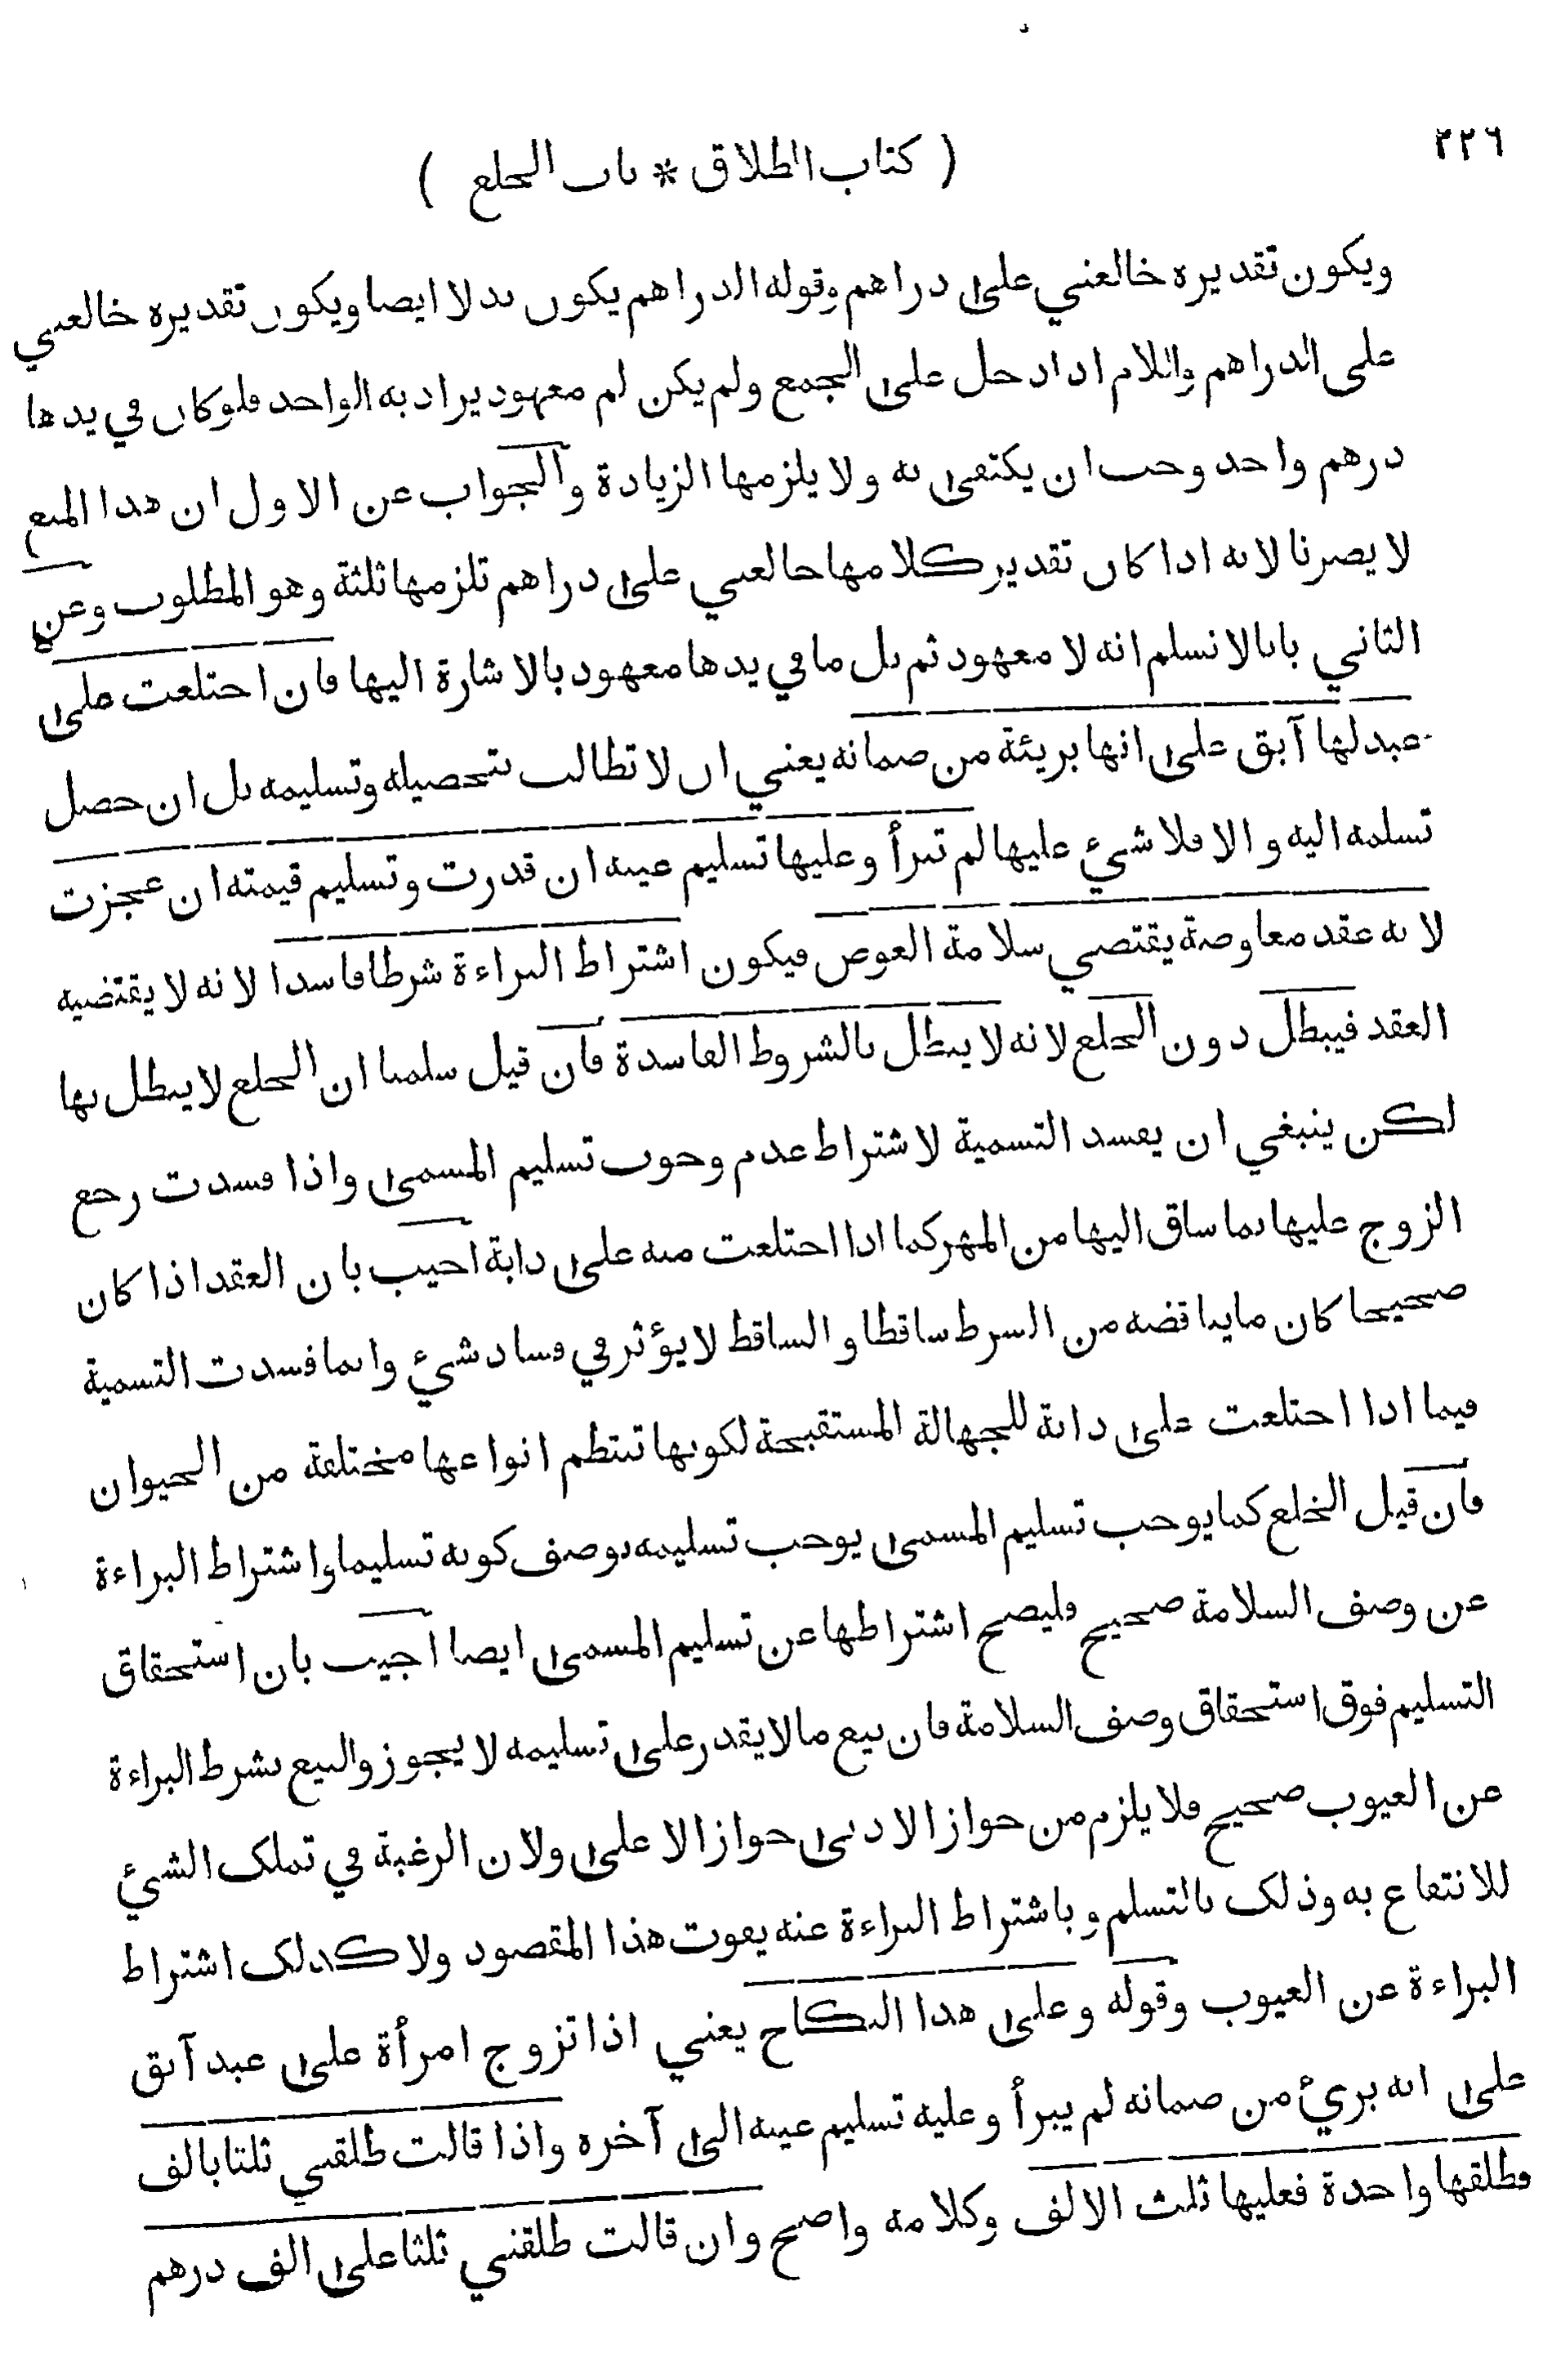 ٢٢٦
( كتاب الطلاق * باب الخلع )
ويكون تقديره خالعني على دراهم وقوله الدراهم يكون بدلا ايضا ويكون تقديره خالعني
على الدراهم واللام اذا دخل على الجمع ولم يكن لم معهود يراد به الواحد فلو كان في يدها
درهم واحد وجب ان يكتفى به ولا يلزمها الزيادة والجواب عن الاول ان هذا المنع
لا يضرنا لانه اذا كان تقدير كلامها خالعني على دراهم تلزمها ثلثة وهو المطلوب وعن
الثاني بانا لا نسلم انه لا معهود ثم بل ما في يدها معهود بالاشارة اليها فان اختلعت على
عبد لها آبق على انها بريئة من ضمانه يعني ان لا تطالب بتحصيله وتسليمه بل ان حصل
تسلمه اليه والا فلا شيء عليها لم تبرأ وعليها تسليم عينه ان قدرت وتسليم قيمته ان عجزت
لانه عقد معاوضة يقتضي سلامة العوض فيكون اشتراط البراءة شرطا فاسدا لانه لا يقتضيه
العقد فيبطل دون الخلع لانه لا يبطل بالشروط الفاسدة فان قيل سلمنا ان الخلع لا يبطل بها
لكن ينبغي ان يفسد التسمية لاشتراط عدم وجوب تسليم المسمى واذا فسدت رجع
الزوج عليها بما ساق اليها من المهر كما اذا اختلعت منه على دابة اجيب بان العقد اذا كان
صحيحا كان ما يناقضه من الشرط ساقطا والساقط لا يؤثر في فساد شيء وانما فسدت التسمية
فيما اذا اختلعت على دابة للجهالة المستقبحة لكونها تنتظم انواعها مختلفة من الحيوان
فان قيل الخلع كما يوجب تسليم المسمى يوجب تسليمه بوصف كونه تسليما واشتراط البراءة
عن وصف السلامة صحيح فليصح اشتراطها عن تسليم المسمى ايضا اجيب بان استحقاق
التسليم فوق استحقاق وصف السلامة فان بيع ما لا يقدر على تسليمه لا يجوز والبيع بشرط البراءة
عن العيوب صحيح فلا يلزم من جواز الادنى جواز الاعلى ولان الرغبة في تملك الشيء
للانتفاع به وذلك بالتسلم وباشتراط البراءة عنه يفوت هذا المقصود ولا كذلك اشتراط
البراءة عن العيوب وقوله وعلى هذا النكاح يعني اذا تزوج امرأة على عبد آبق
على انه بريء من ضمانه لم يبرأ وعليه تسليم عينه الى آخره واذا قالت طلقني ثلثا بالف
فطلقها واحدة فعليها ثلث الالف وكلامه واضح وان قالت طلقني ثلثا على الف درهم